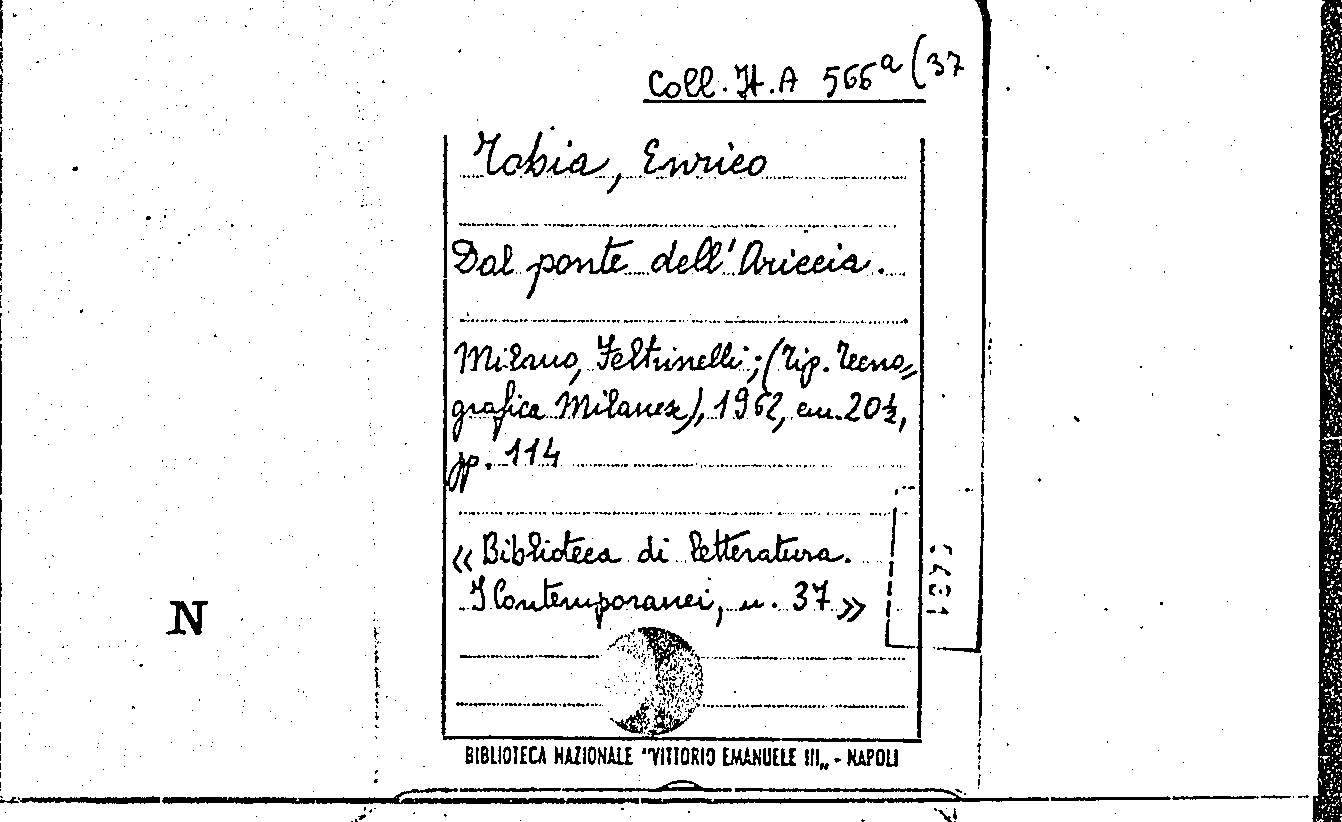 Coll. It. A 566ª (37
Tobia, Enrico
Dal ponte dell'Ariccia.
Milano, Feltrinelli; (Tip. Tecno=
grafica Milanese), 1962, cm. 20½,
pp. 114
«Biblioteca di letteratura.
I Contemporanei, n. 37»
N
BIBLIOTECA NAZIONALE "VITTORIO EMANUELE III„ - NAPOLI